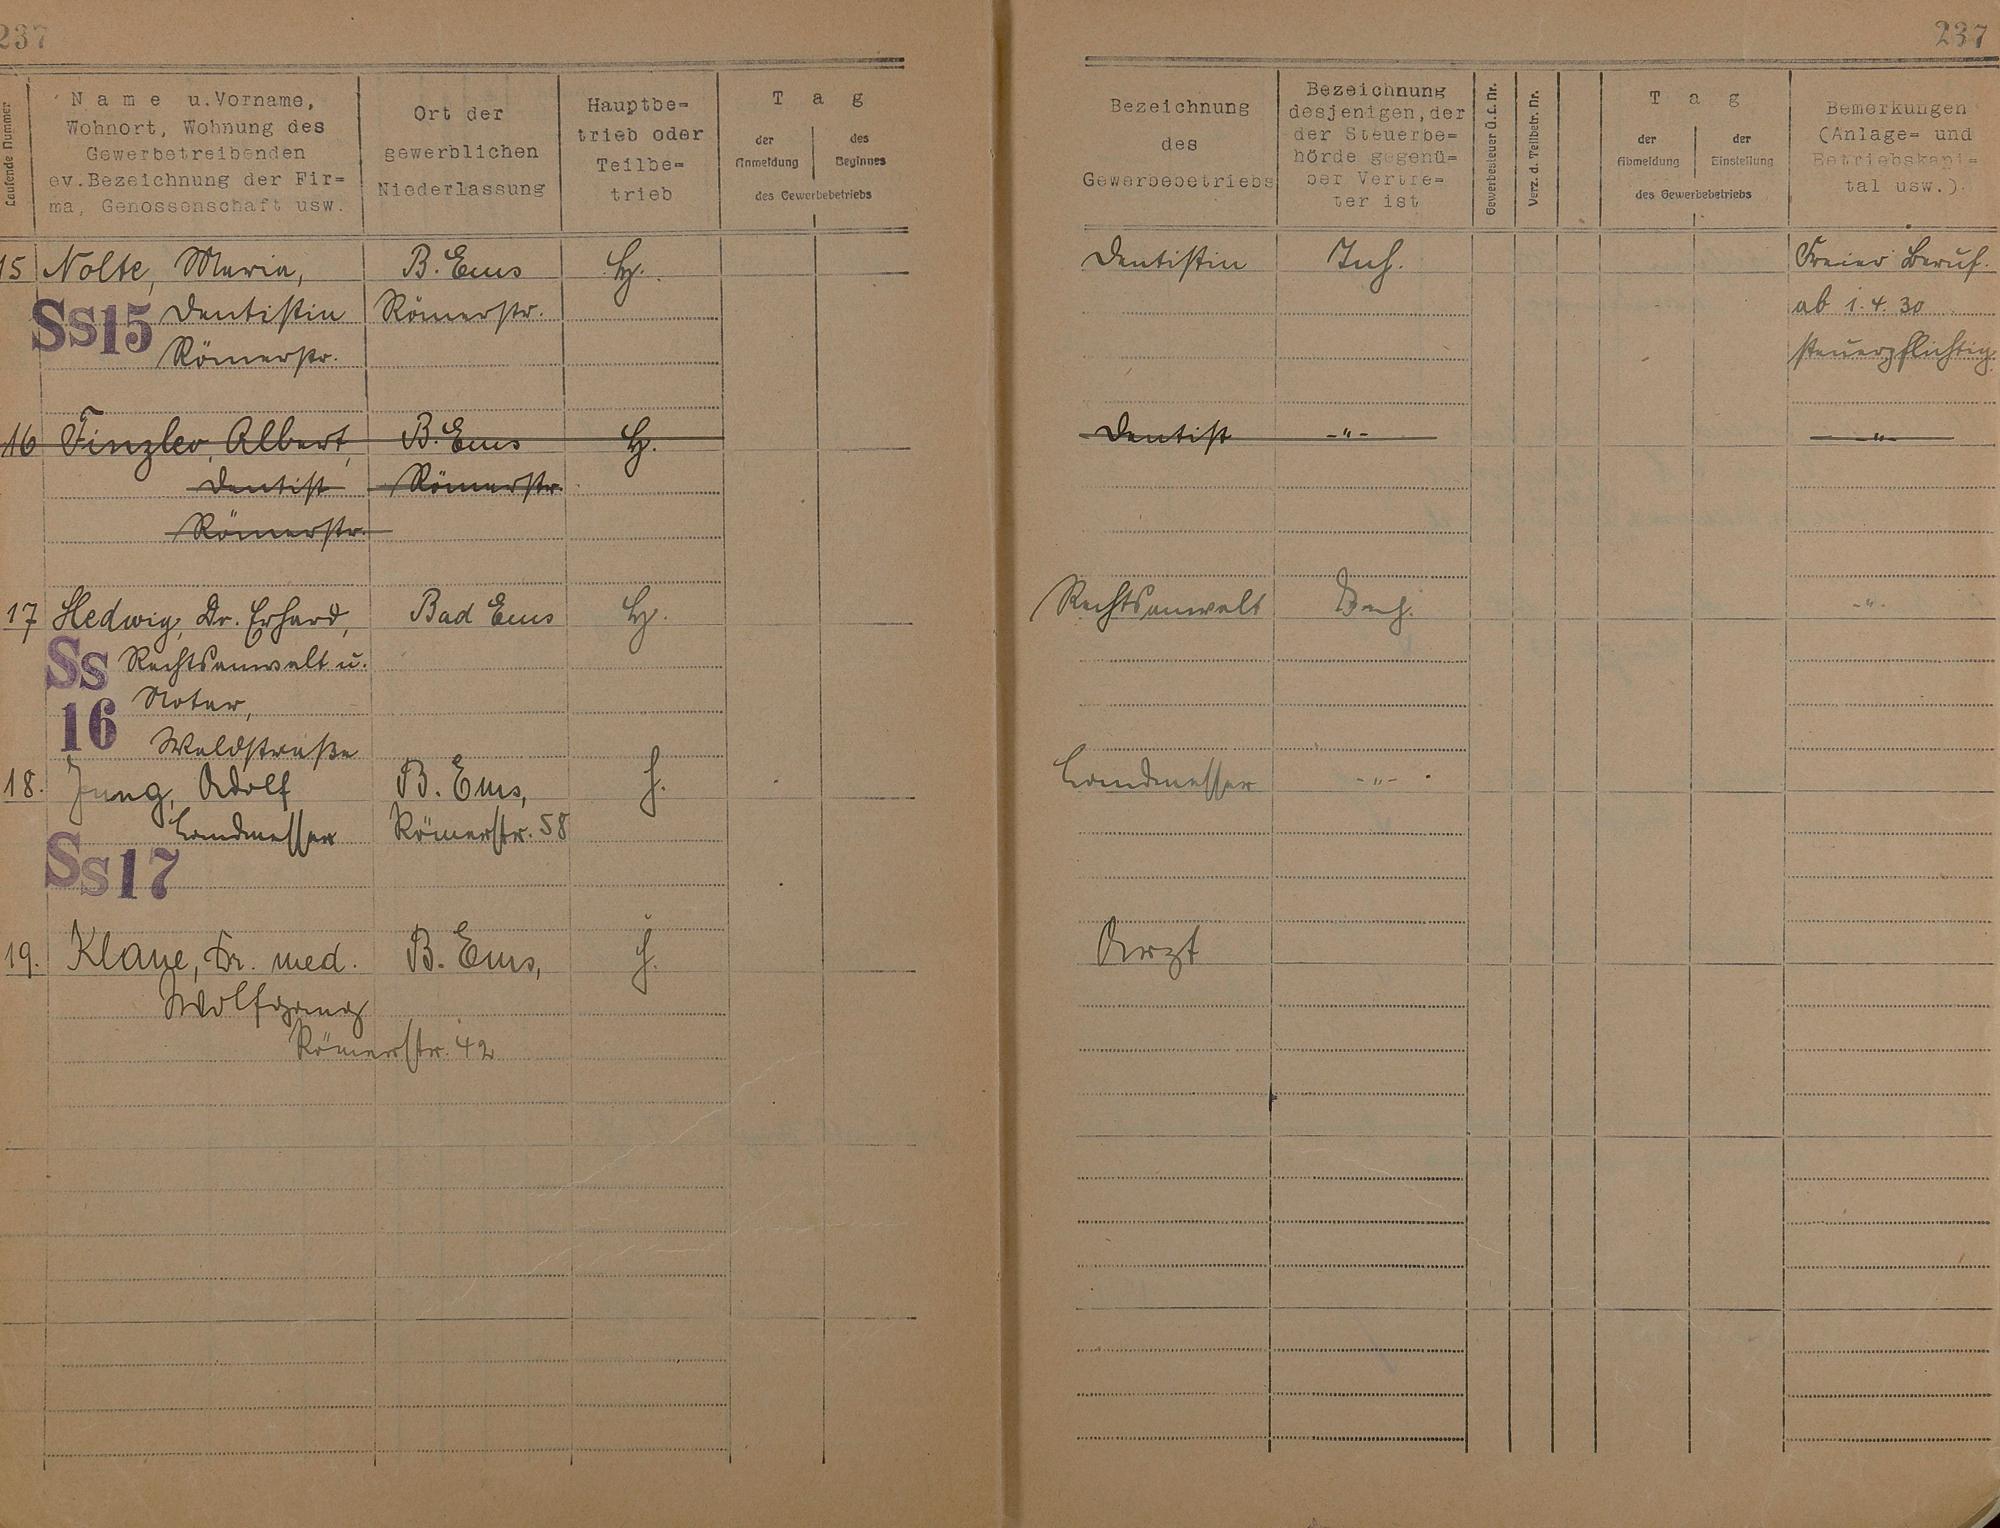 237
Laufende Nummer
Name u. Vorname,
Wohnort, Wohnung des
Gewerbetreibenden
ev. Bezeichnung der Fir=
ma, Genossenschaft usw.
Ort der
gewerblichen
Niederlassung
Hauptbe=
trieb oder
Teilbe=
trieb
Tag
der
Anmeldung
des
Beginnes
des Gewerbebetriebs
15 Nolte, Maria, B. Ems H.
Ss15 Dentistin Römerstr.
Römerstr.
16 Finzler, Albert, B. Ems H.
Dentist Römerstr.
Römerstr.
17 Hedwig, Dr. Erhard, Bad Ems H.
Ss Rechtsanwalt u.
16 Notar,
Waldstraße
18. Jung, Adolf B. Ems, H.
Landmesser Römerstr. 58
Ss17
19. Dr. med. B. Ems, H.
Wolfgang
Römerstr. 42
237
Bezeichnung
des
Gewerbebetriebs
Bezeichnung
desjenigen, der
der Steuerbe=
hörde gegenü=
ber Vertre=
ter ist
Gewerbesteuer Ü.L. Nr.
Verz. d. Teilbetr. Nr.
Tag
der
Abmeldung
der
Einstellung
des Gewerbebetriebs
Bemerkungen
(Anlage= und
Betriebskapi=
tal usw.)
Dentistin Inh. Freier Beruf.
ab 1.4.30
steuerpflichtig.
Dentist -"- -"-
Rechtsanwalt -"-
Landmesser -"-
Arzt